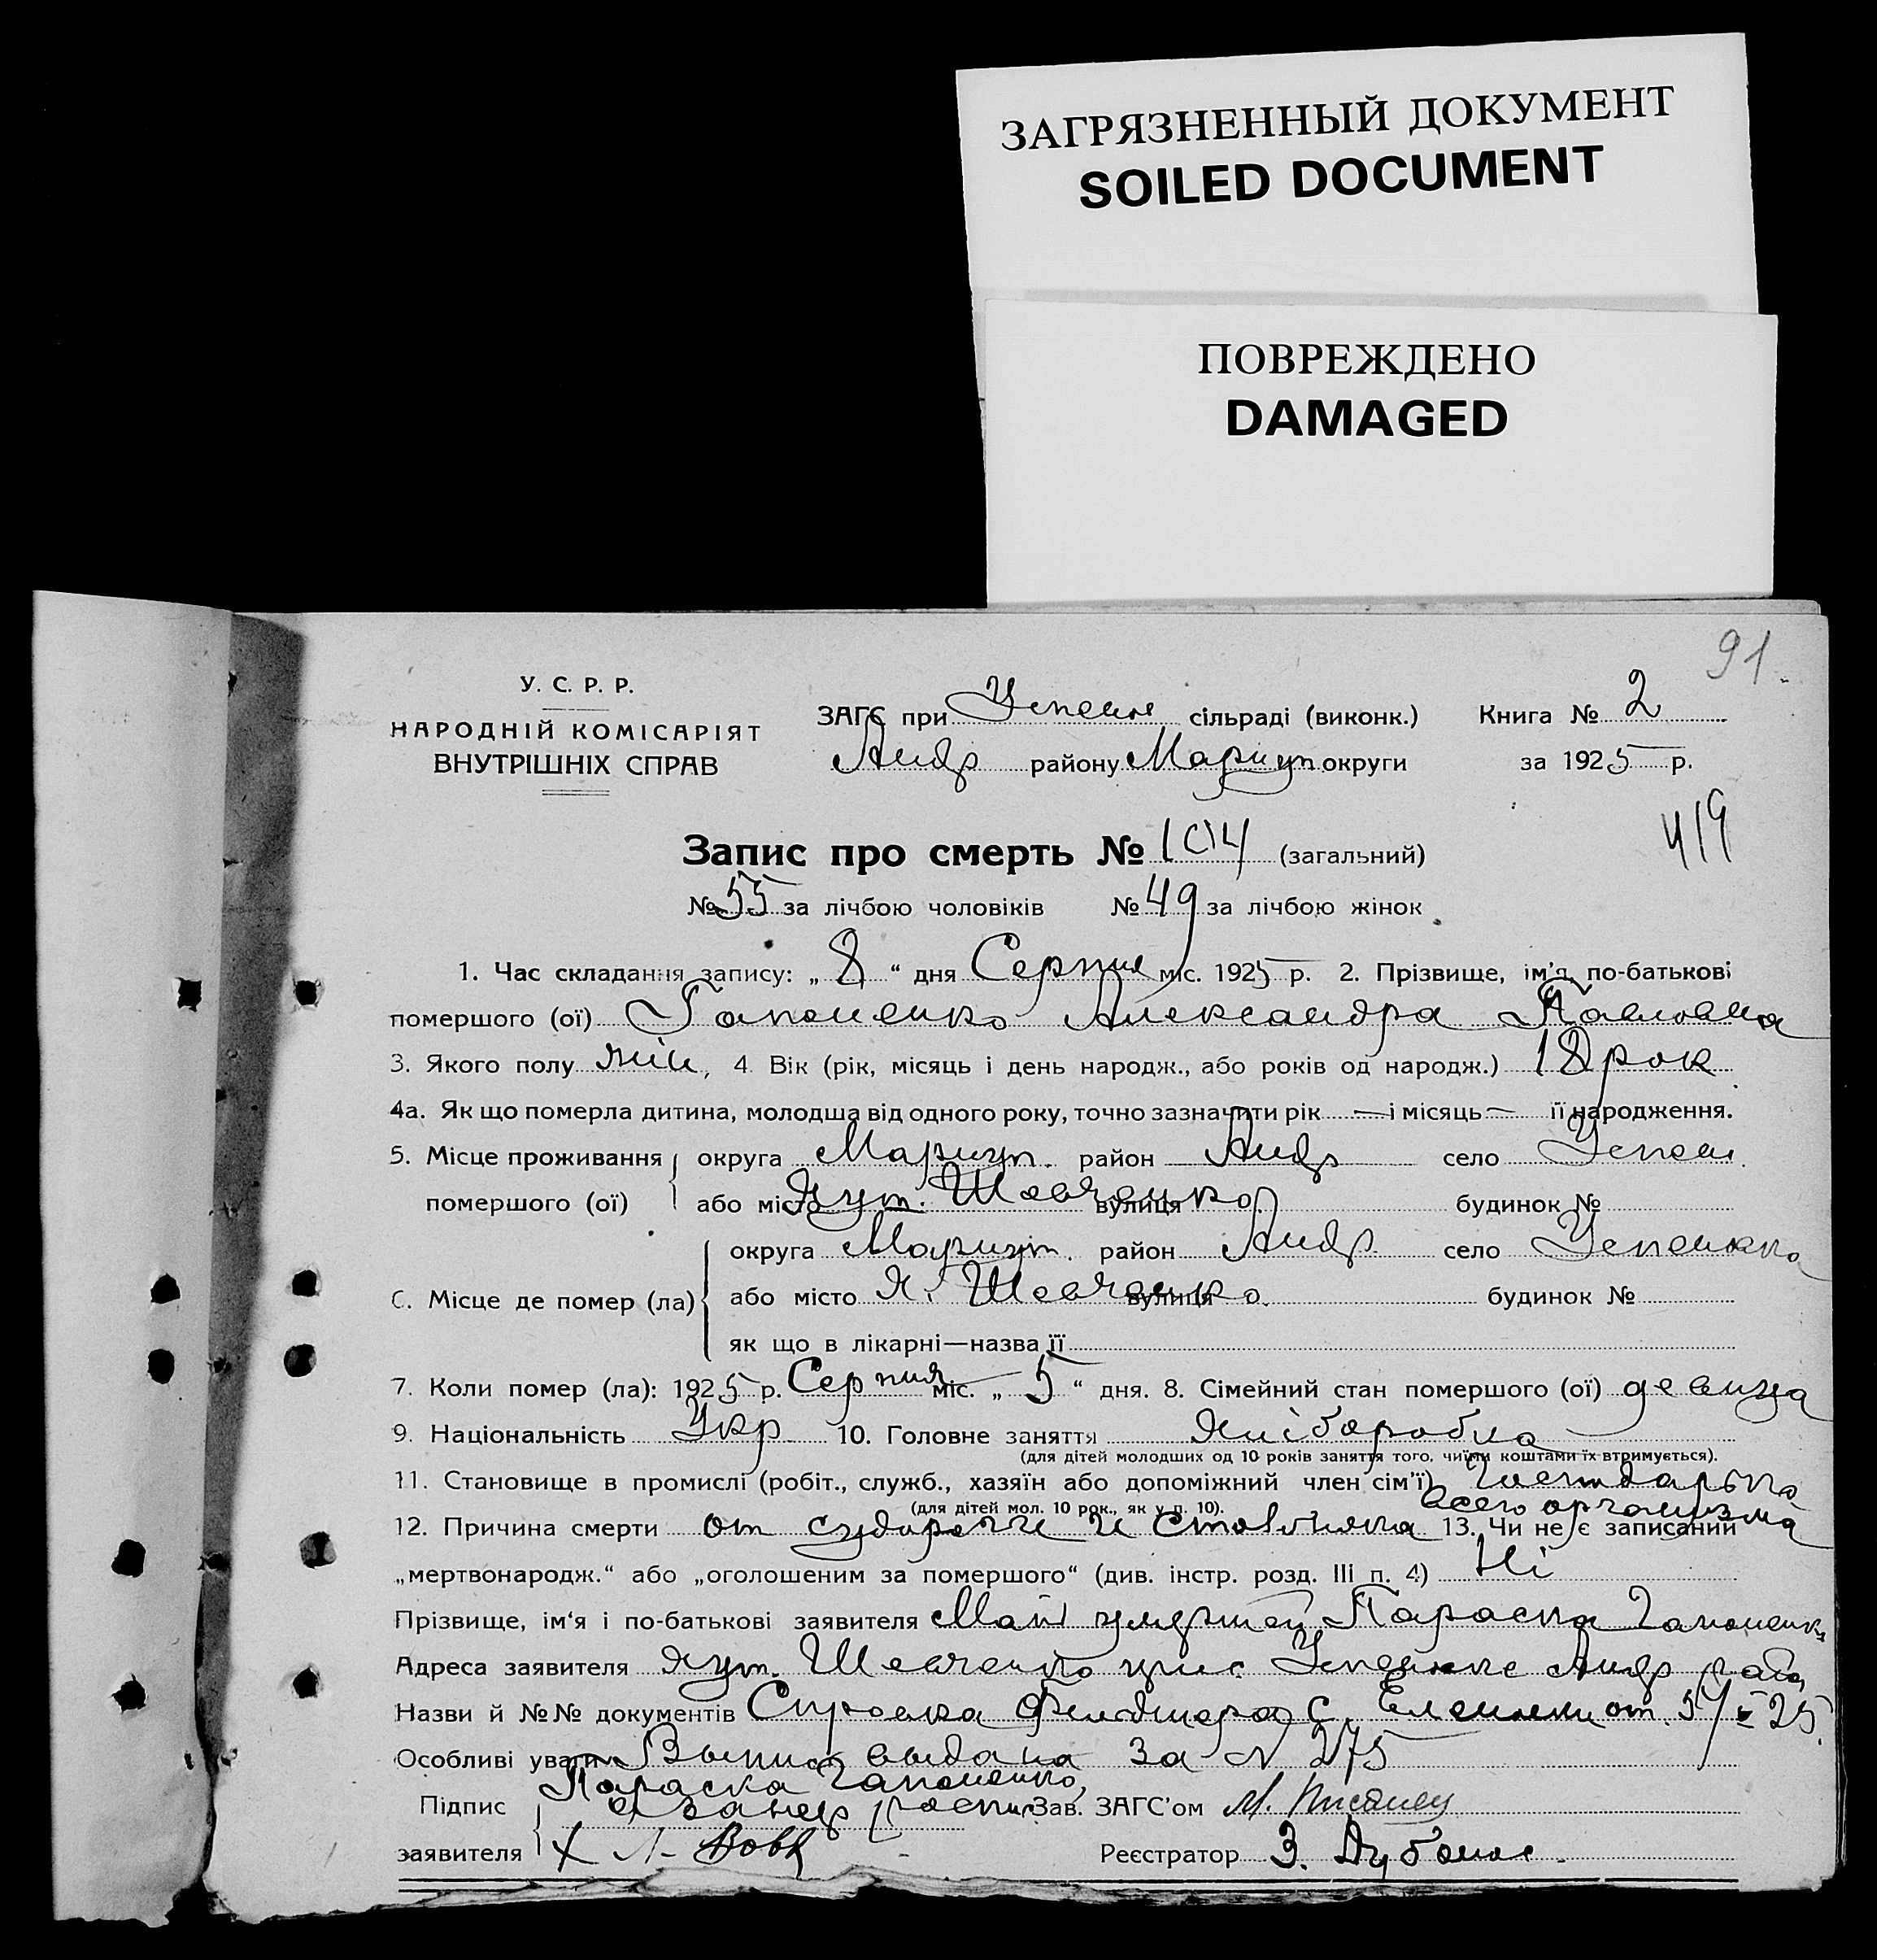 ЗАГРЯЗНЕННЫЙ ДОКУМЕНТ
SOILED DOCUMENT
ПОВРЕЖДЕНО
DAMAGED
91
У. С. Р. Р.
НАРОДНІЙ КОМІСАРІЯТ
ВНУТРІШНІХ СПРАВ
ЗАГС при Успенс сільраді (виконк.)
Андр району Маріуп округи
Книга № 2
за 1925 р.
419
Запис про смерть № 104 (загальний)
№ 55 за лічбою чоловіків № 49 за лічбою жінок
1. Час складання запису: „ 8 “ дня Серпня міс. 1925 р. 2. Прізвище, ім'я, по-батькові
помершого (ої) Гапоненко Александра Павловна
3. Якого полу жін, 4. Вік (рік, місяць і день народж., або років од народж.) 18 рок
4а. Як що померла дитина, молодша від одного року, точно зазначити рік — і місяць — її народження.
5. Місце проживання округа Мариуп. район Андр село Успен
помершого (ої) або місто хут. Шевченко вулиця будинок №
округа Мариуп. район Андр. село Успенка
С. Місце де помер (ла) або місто х. Шевченко вулиця будинок №
як що в лікарні—назва її
7. Коли помер (ла): 1925 р. Серпня міс. „ 5 “ дня. 8. Сімейний стан помершого (ої) девица
9. Національність Укр 10. Головне заняття хліборобка
(для дітей молодших од 10 років заняття того, чиїми коштами їх втримується).
11. Становище в промислі (робіт., служб., хазяїн або допоміжний член сім'ї)
(для дітей мол. 10 рок., як у п. 10).
всего организма
12. Причина смерти от судороги и 13. Чи не є записаний
„мертвонародж.“ або „оголошеним за помершого“ (див. інстр. розд. III п. 4) Ні
Прізвище, ім'я і по-батькові заявителя Мать умершей Параска Гапоненко
Адреса заявителя хут. Шевченко Успенське Андр рай
Назви й №№ документів Справка Фельдшера с. от 5/
Особливі уваги Выпис выдана за № 275
Параска Гапоненко,
Підпис
заявителя Х
Зав. ЗАГС'ом М.
Реєстратор З.